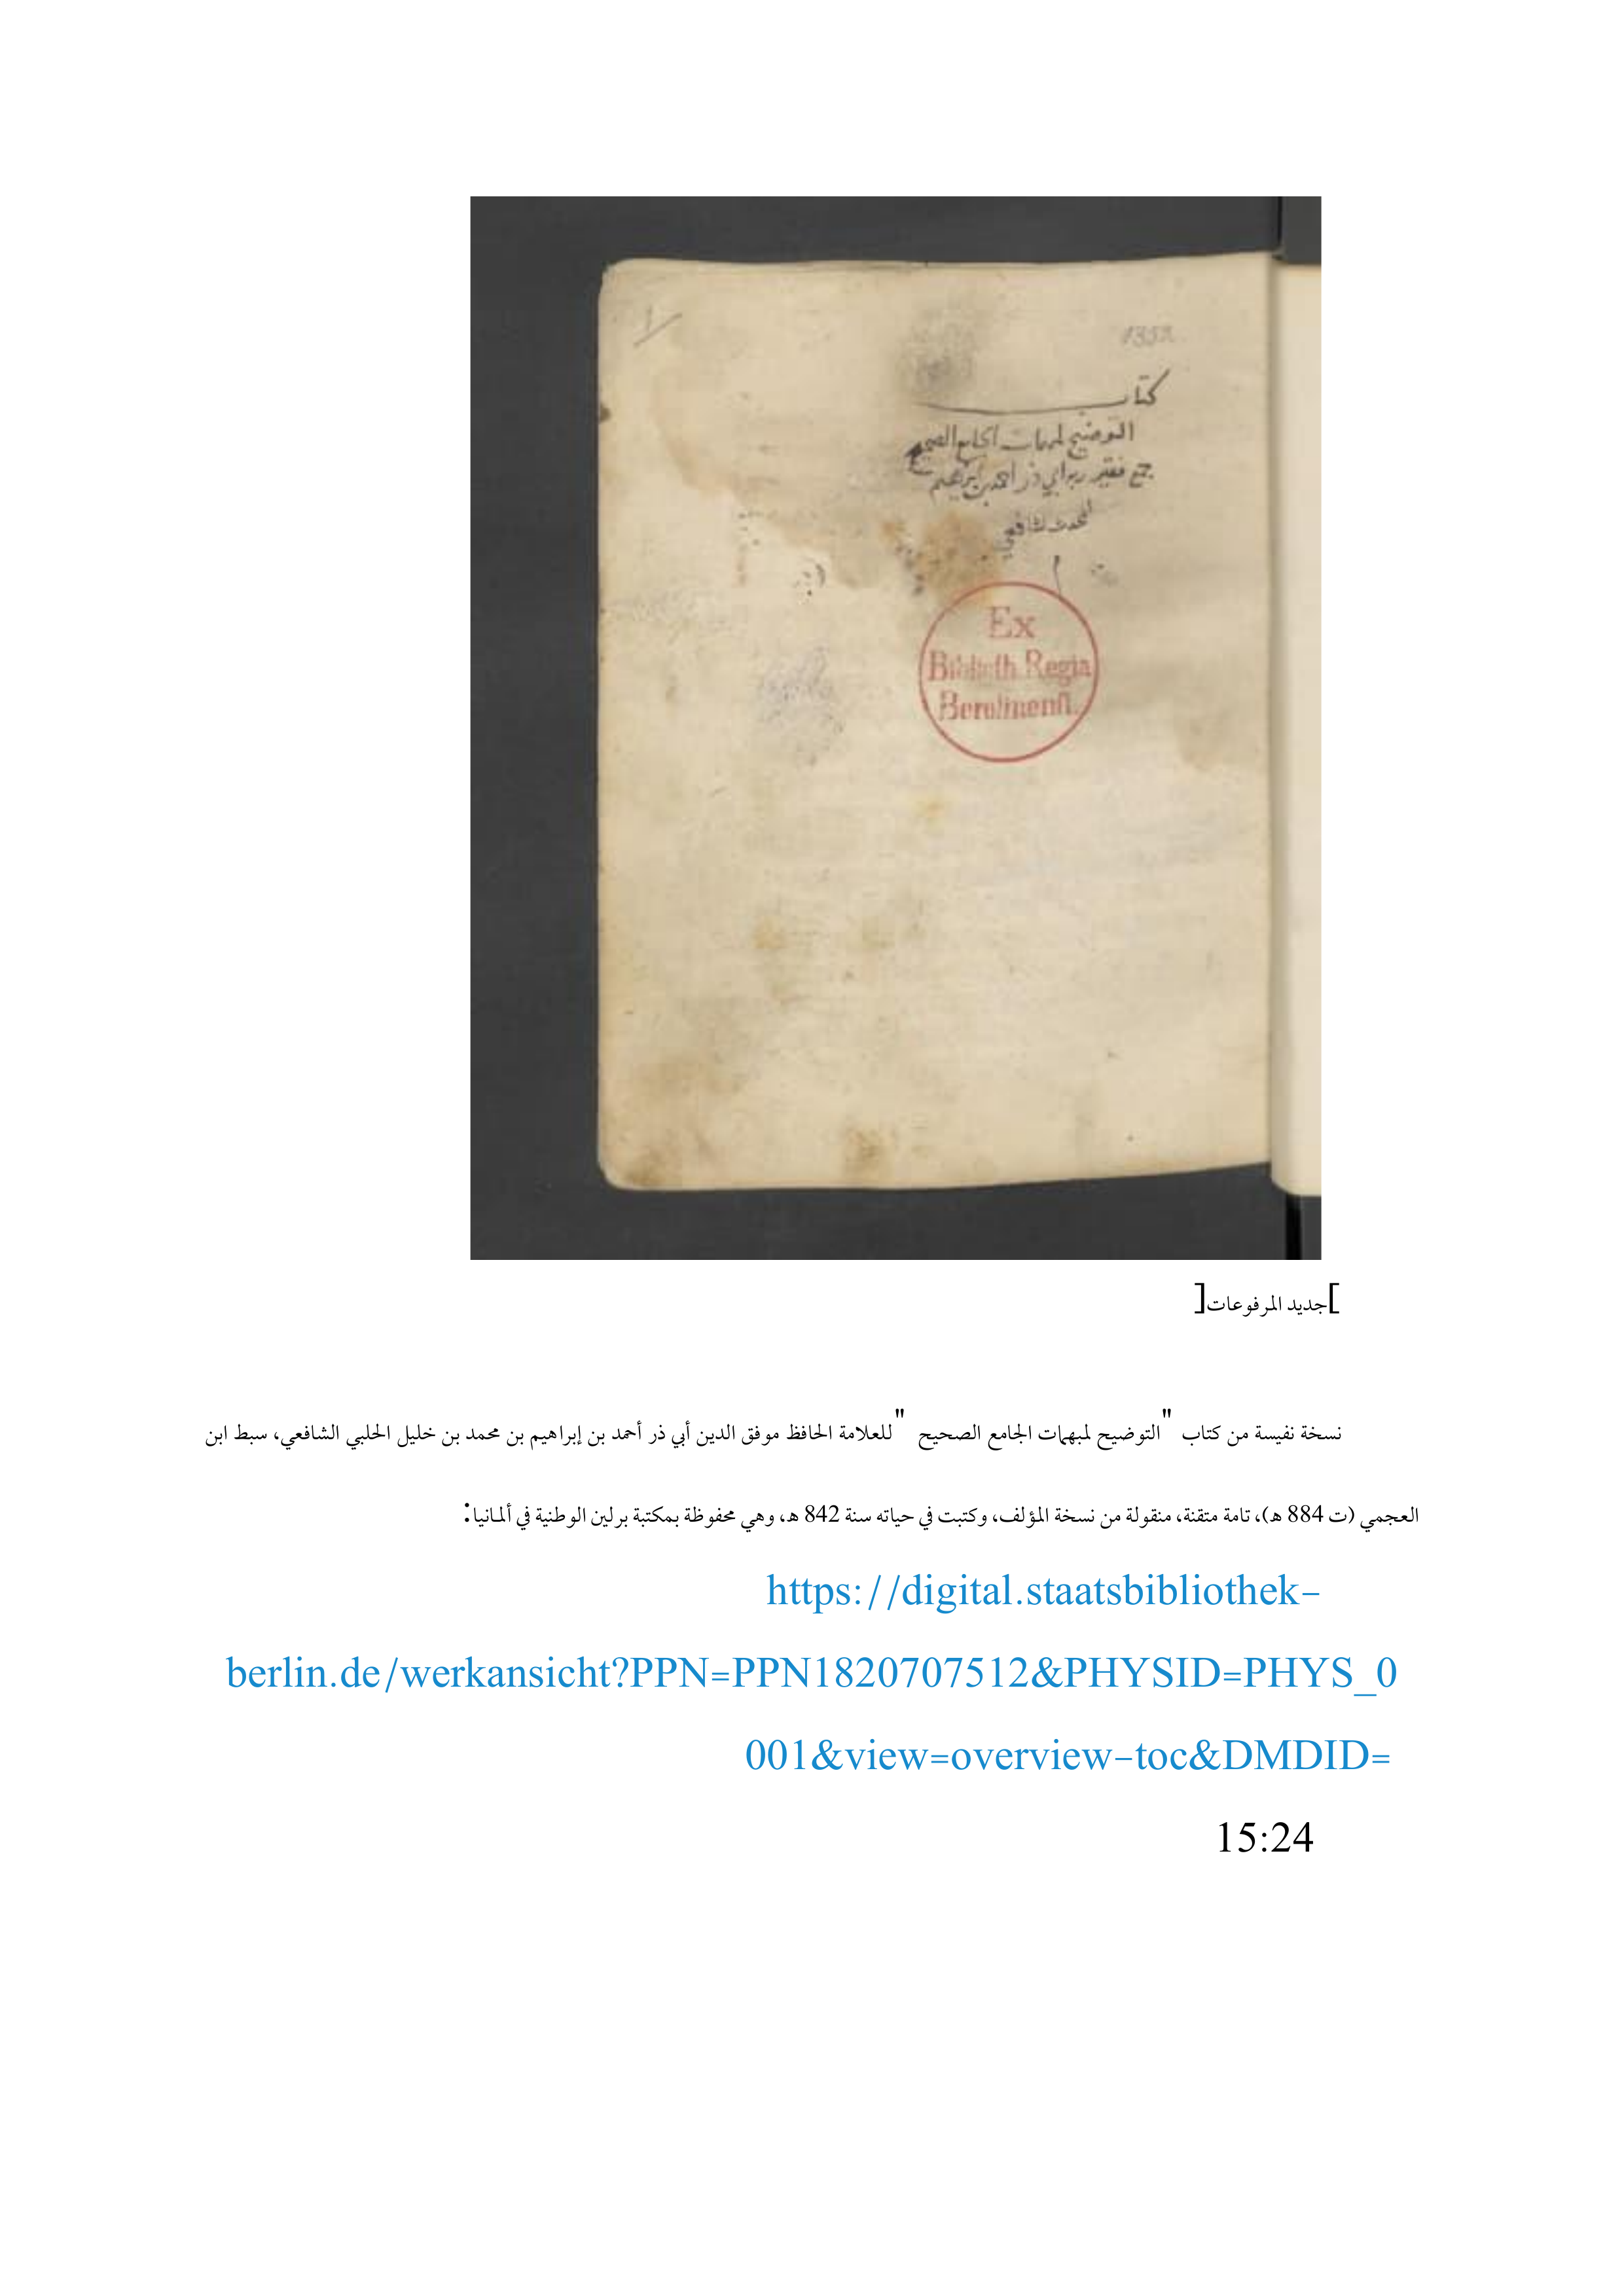 1
1352
كتاب
التوضيح لمبهمات الجامع الصحيح
جمع فقير ربه أبي ذر احمد بن ابرهيم
المحدث الشافعي
Ex
Biblioth. Regia
Berolinenſi.
[جديد المرفوعات]
نسخة نفيسة من كتاب "التوضيح لمبهمات الجامع الصحيح" للعلامة الحافظ موفق الدين أبي ذر أحمد بن إبراهيم بن محمد بن خليل الحلبي الشافعي، سبط ابن
العجمي (ت 884 هـ)، تامة متقنة، منقولة من نسخة المؤلف، وكتبت في حياته سنة 842 هـ، وهي محفوظة بمكتبة برلين الوطنية في ألمانيا:
https://digital.staatsbibliothek-
berlin.de/werkansicht?PPN=PPN1820707512&PHYSID=PHYS_0
001&view=overview-toc&DMDID=
15:24